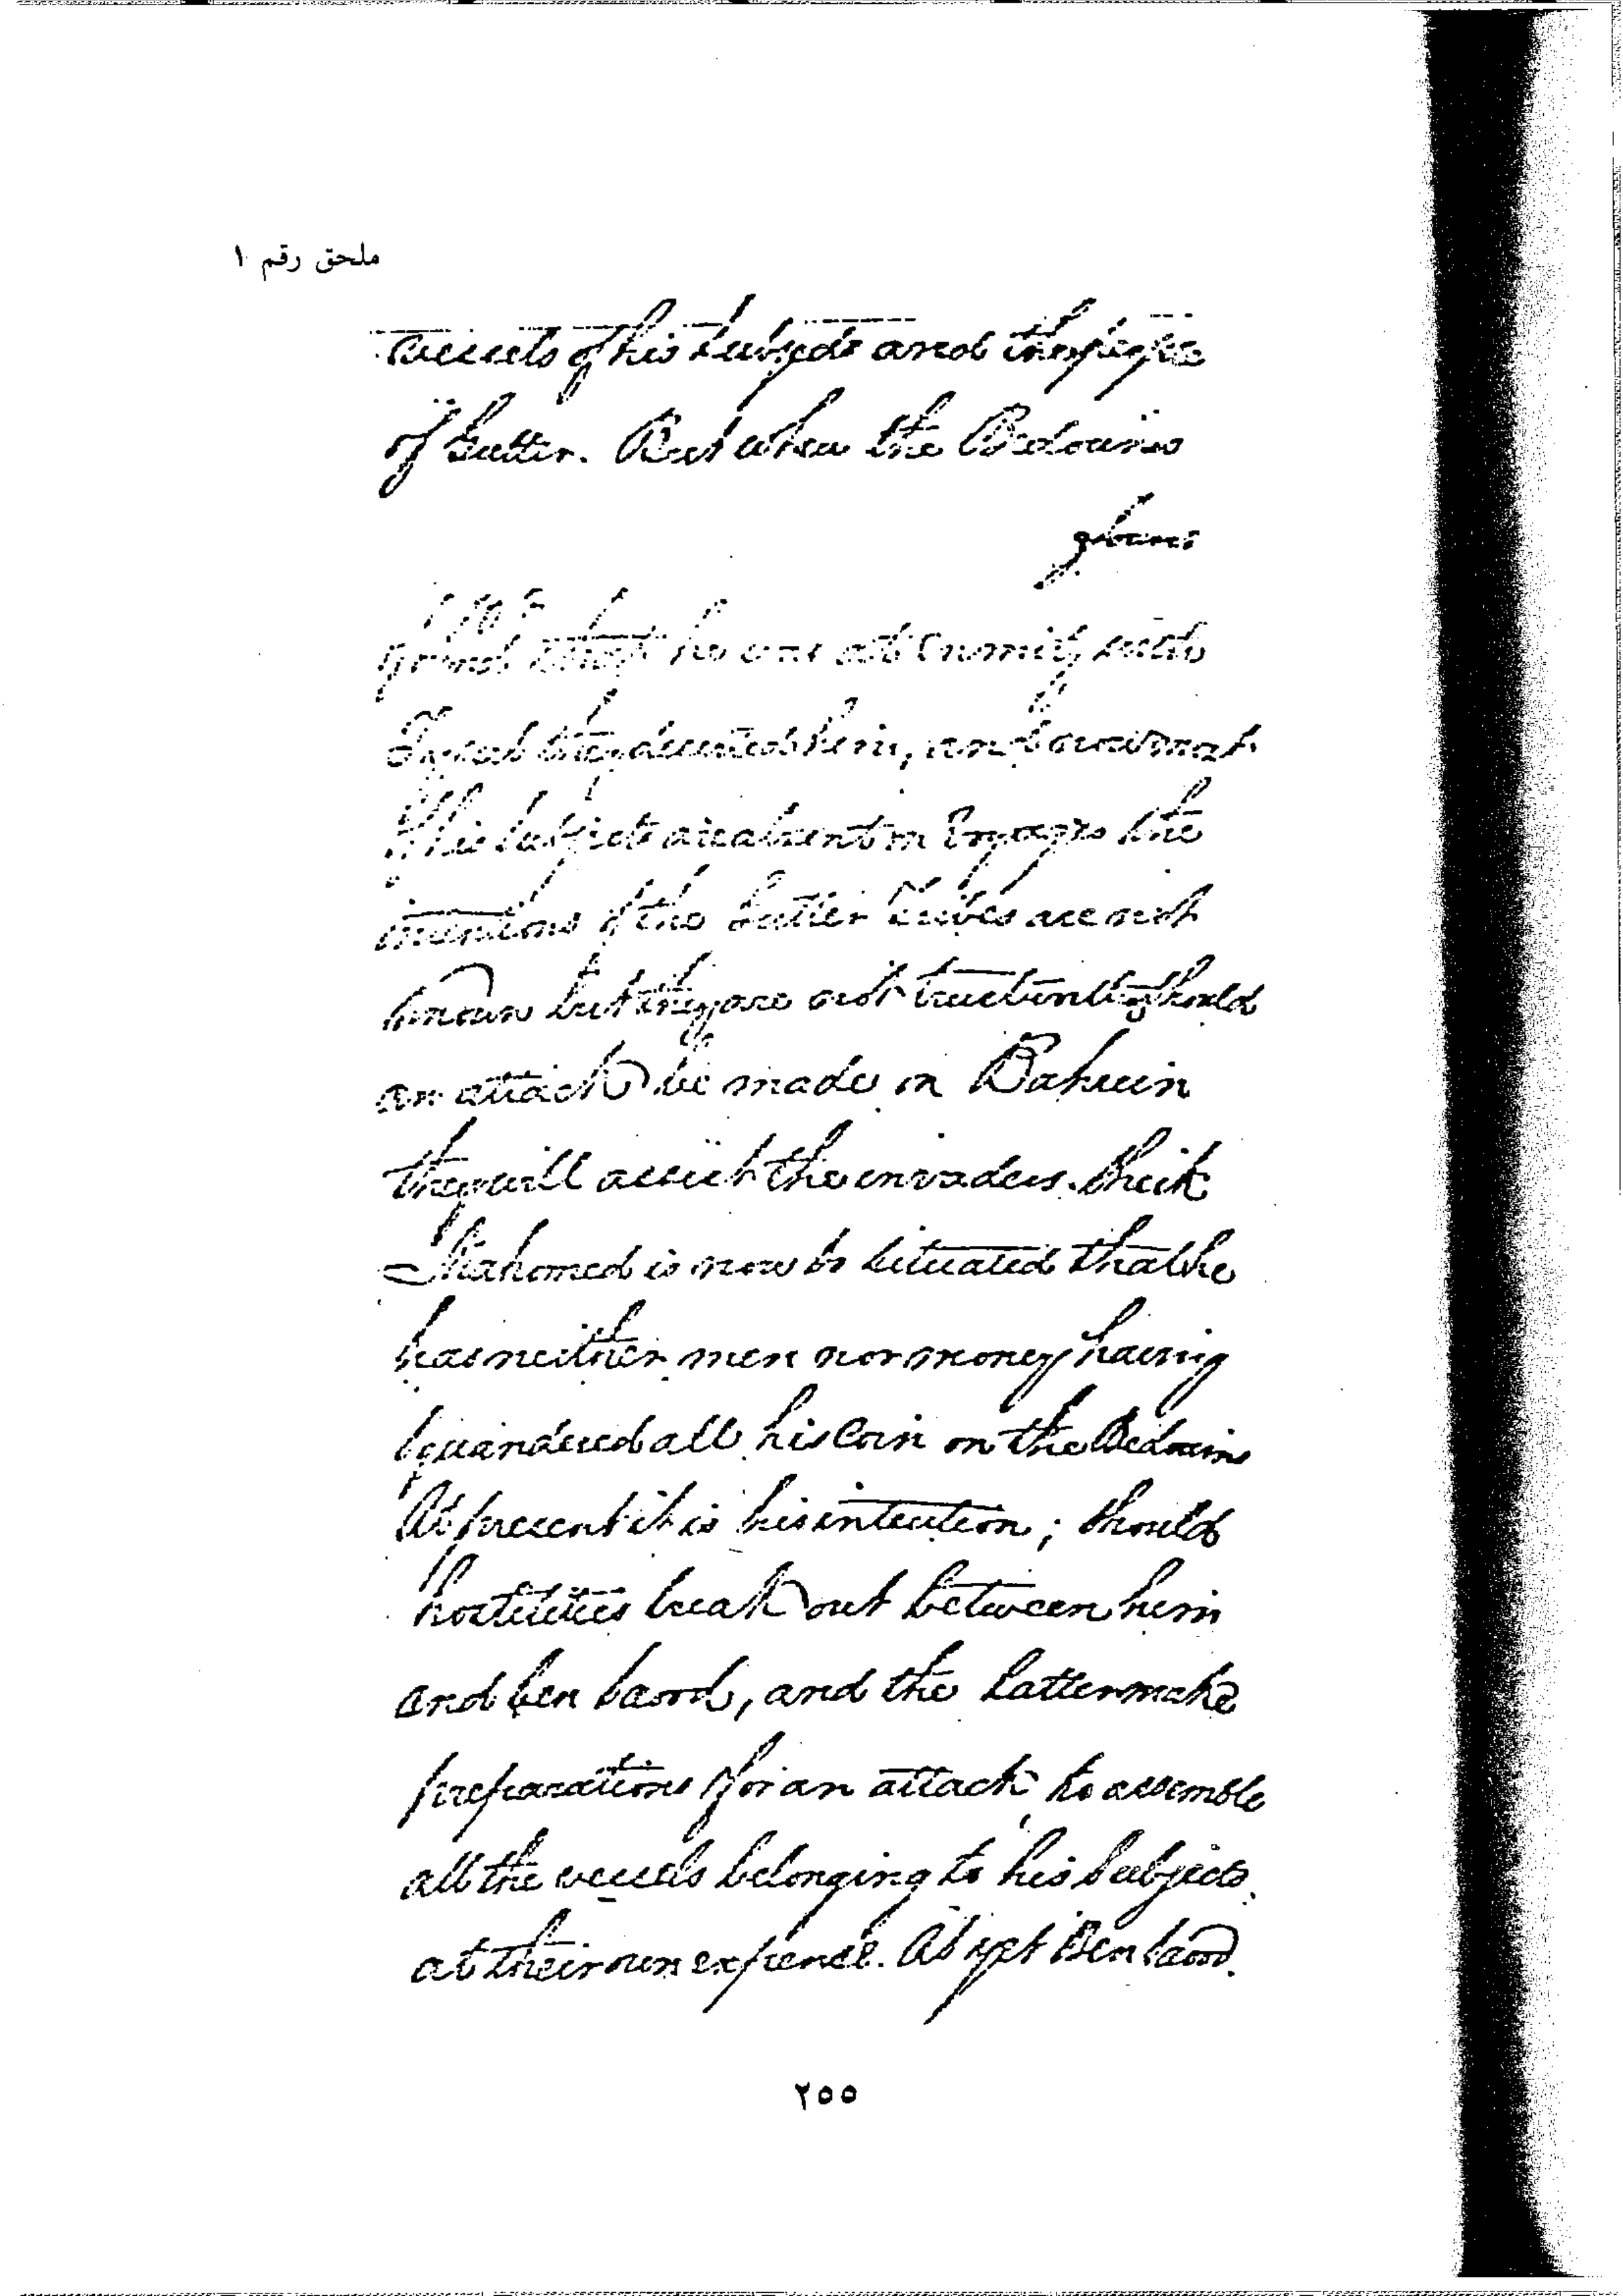 ملحق رقم ١
vessels of his subjects and the people
of Gutter. But when the Bedouins
found that he was at enmity with
they deserted him, and
his subjects are absent on Voyages the
intentions of the Gutter tribes are not
known but they are not trustworthy should
an attack be made on Bahrein
they will assist the invaders. Sheik
Mahomed is now so situated that he
has neither men nor money having
squandered all his Coin on the Bedouins
At present it is his intention; should
hostilities break out between him
and ben Saood, and the latter make
preparations for an attack to assemble
all the vessels belonging to his Subjects
at their own expence. As yet Ben Saood
٢٥٥